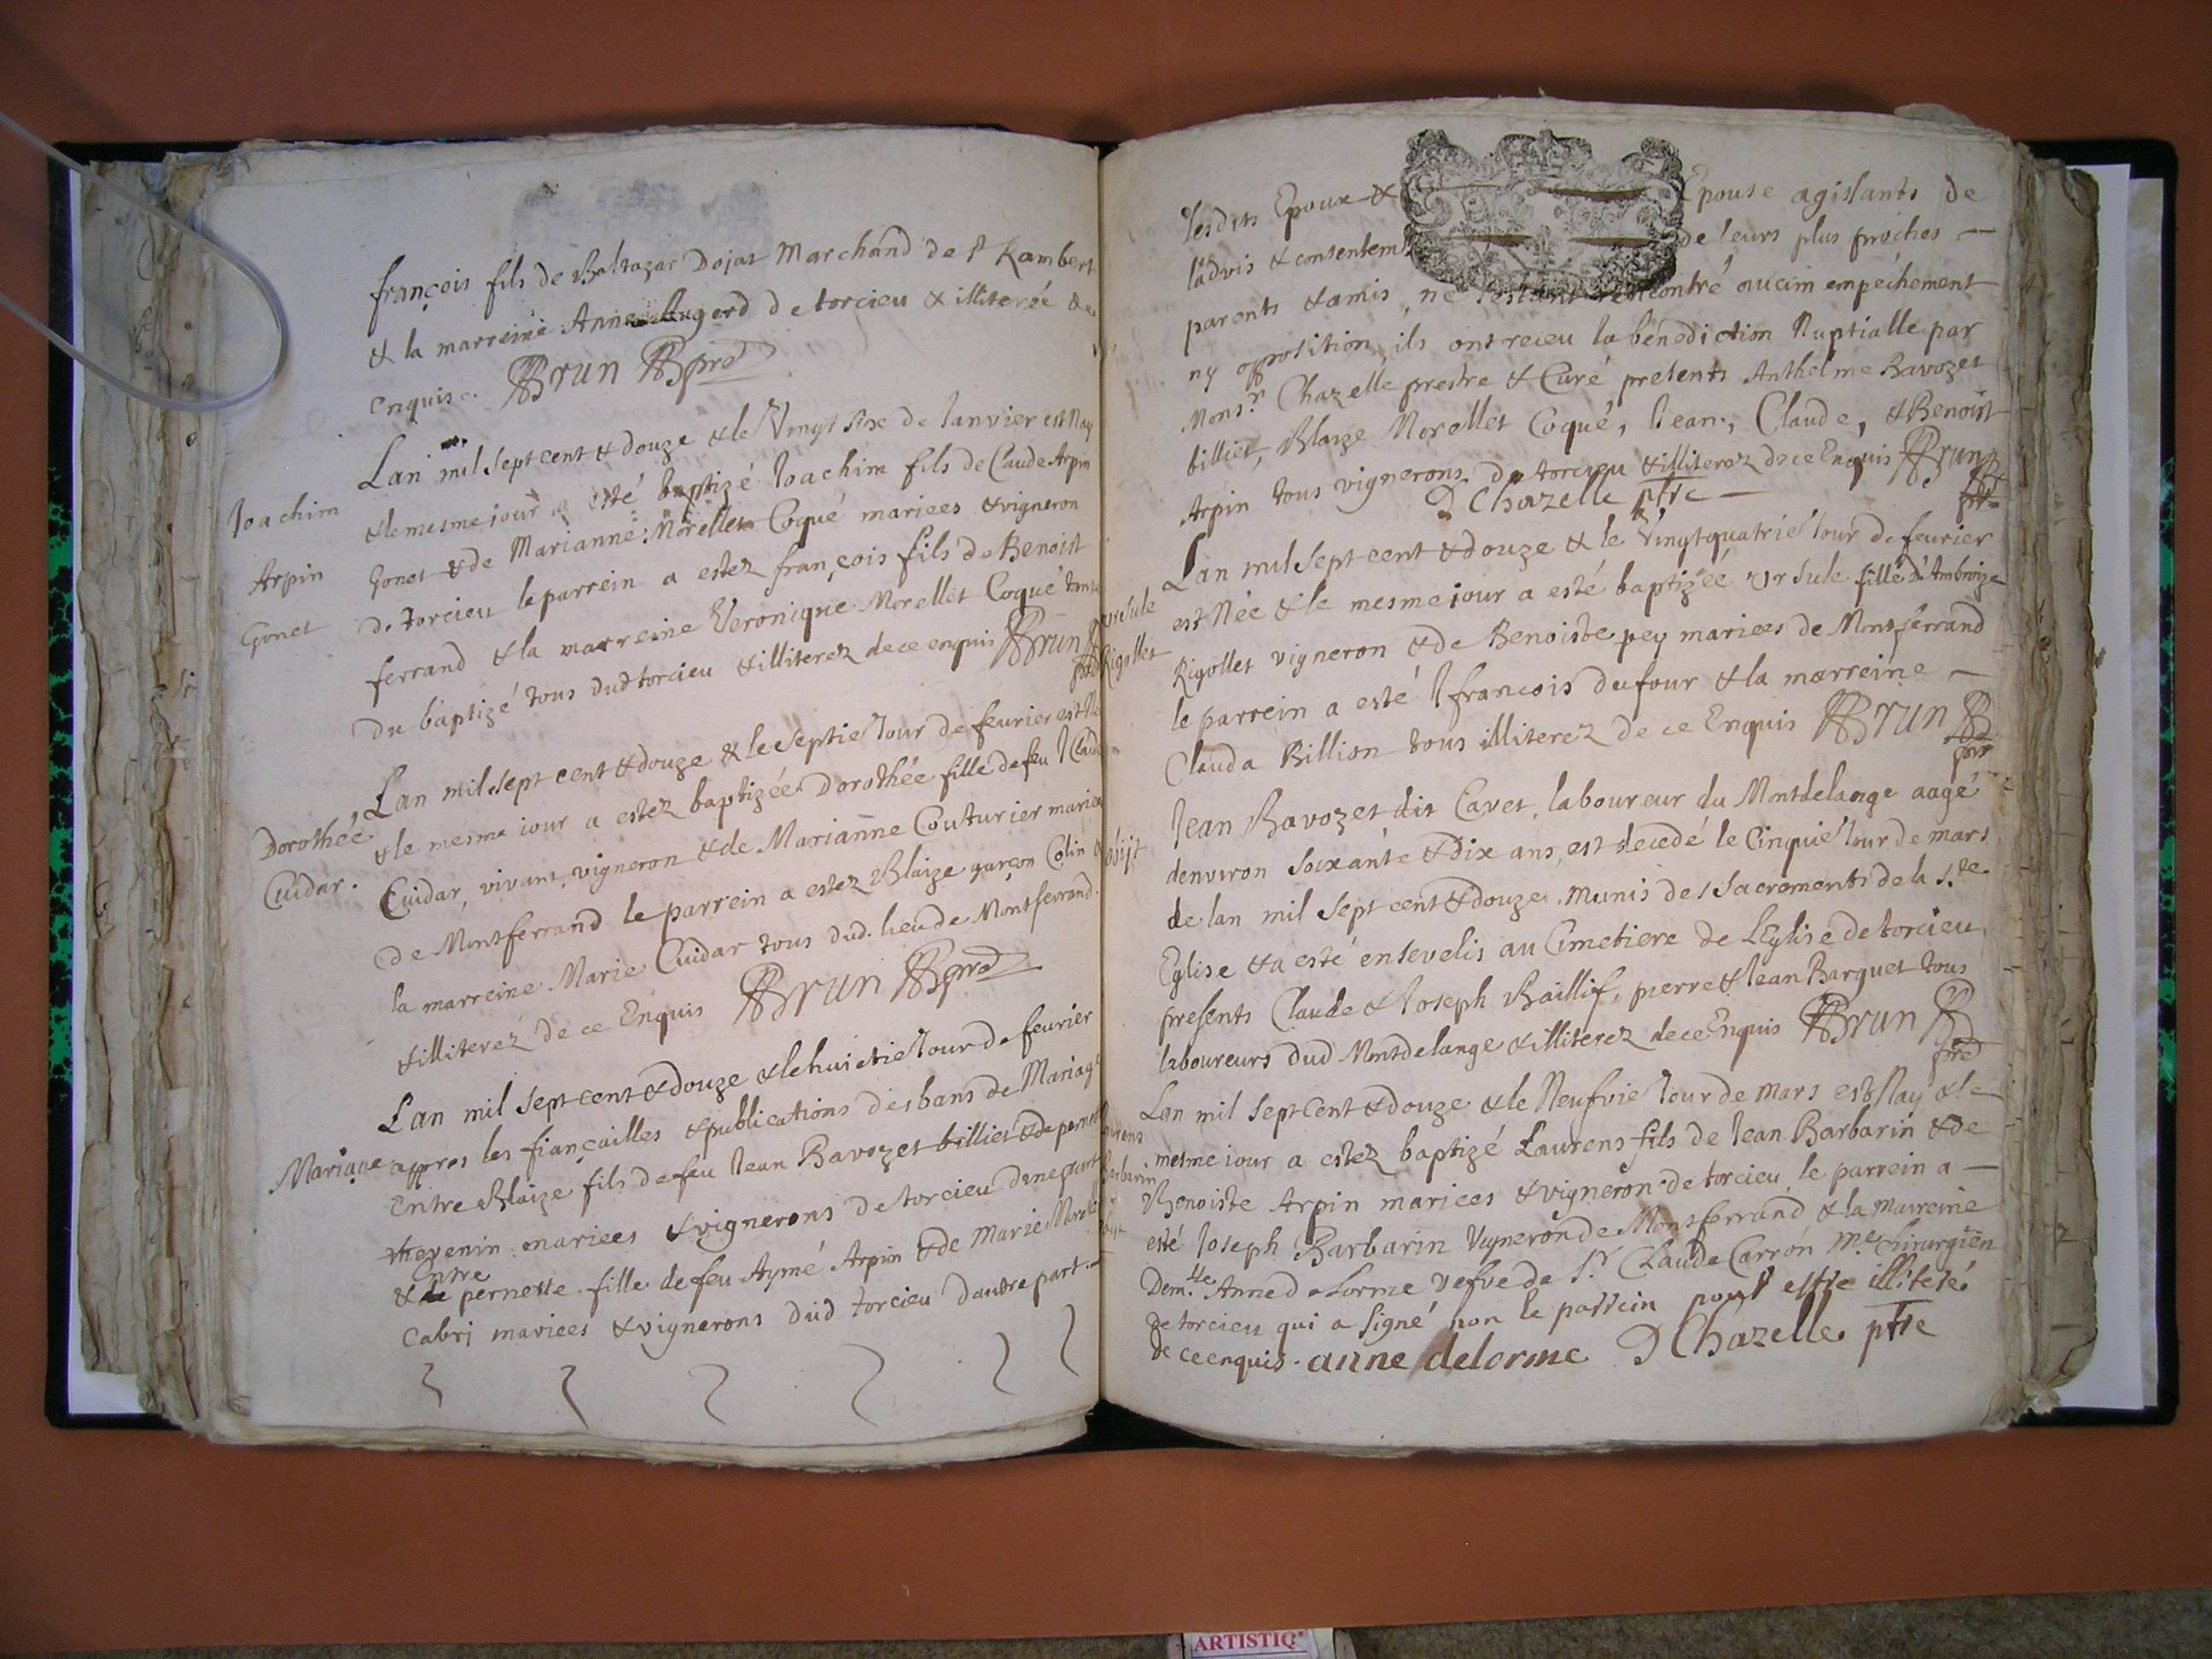 françois fils de Baltazar Dojat Marchand de St Rambert
& la marreine Anne Augerd de torcieu & illiterée de
enquise. Brun pred
Lan mil sept cent & douze & le Vingt sixe de Ianvier est Nay
& le mesme iour a esté baptizé Ioachim fils de Claude Arpin
Gonet & de Marianne Morellet Coqué mariees & vigneron
de torcieu le parrein a estez françois fils de Benoist
ferrand & la marreine Veronique Morellet Coqué tante
du baptizé tous dud torcieu & illiterez de ce enquis Brun
Ioachim
Arpin
Gonet
Lan mil sept cent & douze & le septie Iour de feurier est Née
& le mesme iour a estez baptizée Dorothée fille de feu Claude
Cuidar, vivant vigneron & de Marianne Couturier mariee
de Montferrand le parrein a estez Blaize garçon Colin &
la marreine Marie Cuidar tous dud. lieu de Montferrand.
& illiterez de ce Enquis Brun pred
Dorothée
Cuidar.
Lan mil sept cent & douze & le huictie Iour de feurier
appres les fiançailles & publications des bans de Mariage
Entre Blaize fils de feu Iean Ravozet billiet & de pernette
thevenin mariees & vignerons de torcieu dune part
Entre
& pernette fille de feu Aymé Arpin & de Marie Morellet
Cabri mariees & vignerons dud torcieu dautre part.
Mariage
lesdits Epoux & Epouse agissants de
ladvis & consentemt de leurs plus proches
parents & amis, ne sestant rencontré aucun empéchement
ny opposition, ils ont receu la bénédiction Nuptialle par
Monsr. Chazelle prestre & Curé presents Anthelme Ravozet
billiet, Blaize Morellet Coqué, Iean, Claude, & Benoist
Arpin tous vignerons de torcieu & illiterez de ce Enquis Brun
D Chazelle ptre
Lan mil sept cent & douze & le Vingtquatrie Iour de feurier
est Née & le mesme iour a esté baptizée Ursule fille d'Ambroize
Rigollet vigneron & de Benoiste pey mariees de Montferrand
le parrein a esté françois dufour & la marreine
Clauda Billion tous illiterez de ce Enquis Brun
Ursule
Rigollet
Iean Ravozet dit Cavet, laboureur du Montdelange aagé
denviron soixante & dix ans, est decedé le Cinquie Iour de mars
de lan mil sept cent & douze, munis des sacrements de la Ste
Eglise & a esté ensevelis au Cimetiere de LEglise de torcieu
presents Claude & Ioseph Baillif, pierre & Iean Barquet tous
laboureurs dud Montdelange & illiterez de ce Enquis Brun pred
obijt
Lan mil sept Cent & douze & le Neufvie Iour de Mars est Nay & le
mesme iour a estez baptizé Laurens fils de Iean Barbarin & de
Benoiste Arpin mariees & vigneron de torcieu, le parrein a
esté Ioseph Barbarin Vigneron de Montferrand & la Marreine
Demlle. Anne deLorme vefve de Sr Claude Carron me. chirurgien
de torcieu qui a signé non le parrein pour estre illiteré
de ce enquis. anne delorme D Chazelle ptre
Laurens
Barbarin
obijt
ARTISTIQ